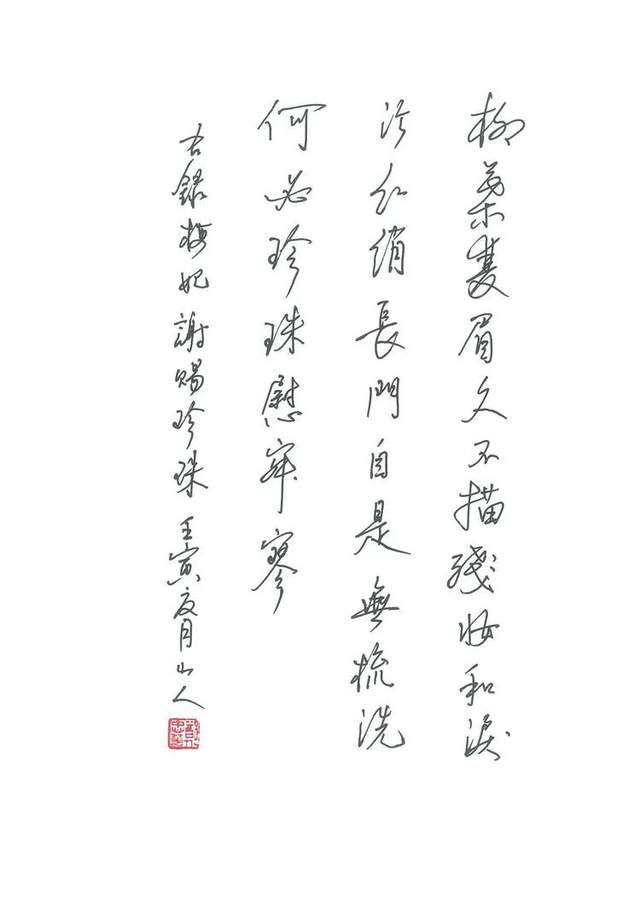 柳葉雙眉久不描殘妝和淚
污紅綃長門自是無梳洗
何必珍珠慰寂寥
右錄梅妃謝賜珍珠 壬寅夏月山人